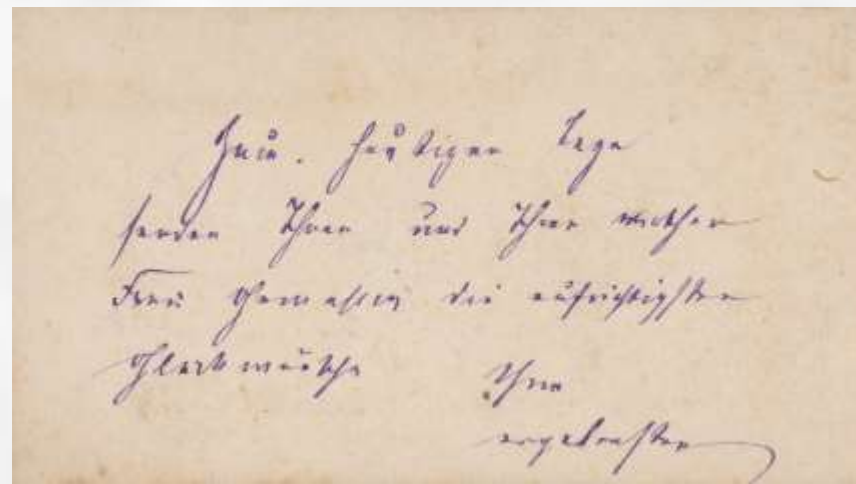 Zum heutigen Tage
senden Ihnen und Ihrer werthen
Frau Gemahlin die aufrichtigsten
Glückwünsche Ihre
ergebensten